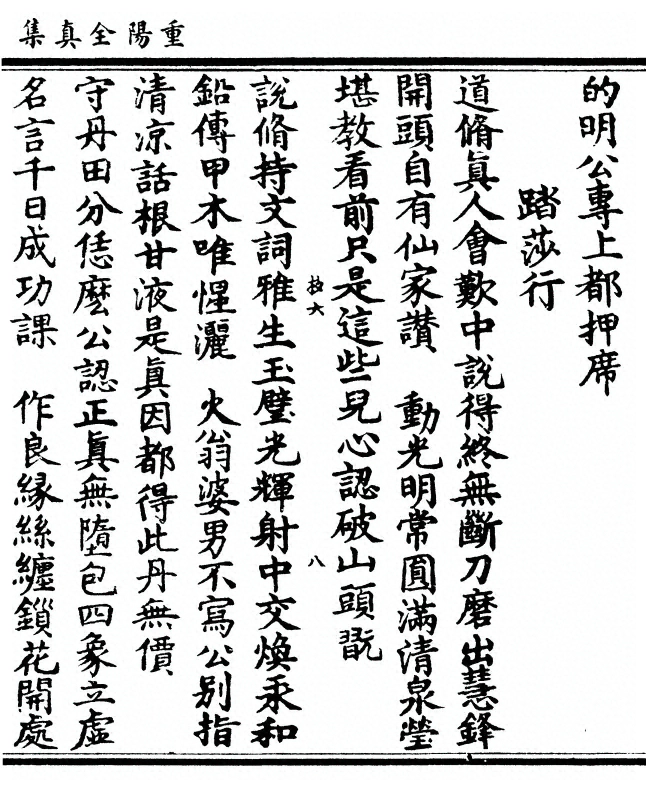 重陽全真集
的明公專上都押席
踏莎行
道脩眞人會歎中說得終無斷刀磨出慧鋒
開頭自有仙家讃　動光明常圓滿清泉瑩
堪教看前只是這些兒心認破山頭翫
八
說脩持文詞雅生玉壁光輝射中交煥汞和
鉛傳甲木唯惺灑　火翁婆男不寫公別指
清凉話根甘液是眞因都得此丹無價
守丹田分恁麽公認正眞無墮包四象立虛
名言千日成功課　作良緣絲纏鎖花開處